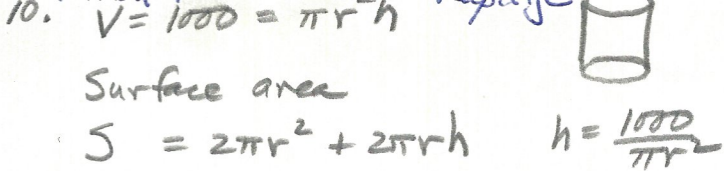 10. V = 1000 = πr²h
Surface area
S = 2πr² + 2πrh h = 1000/πr²